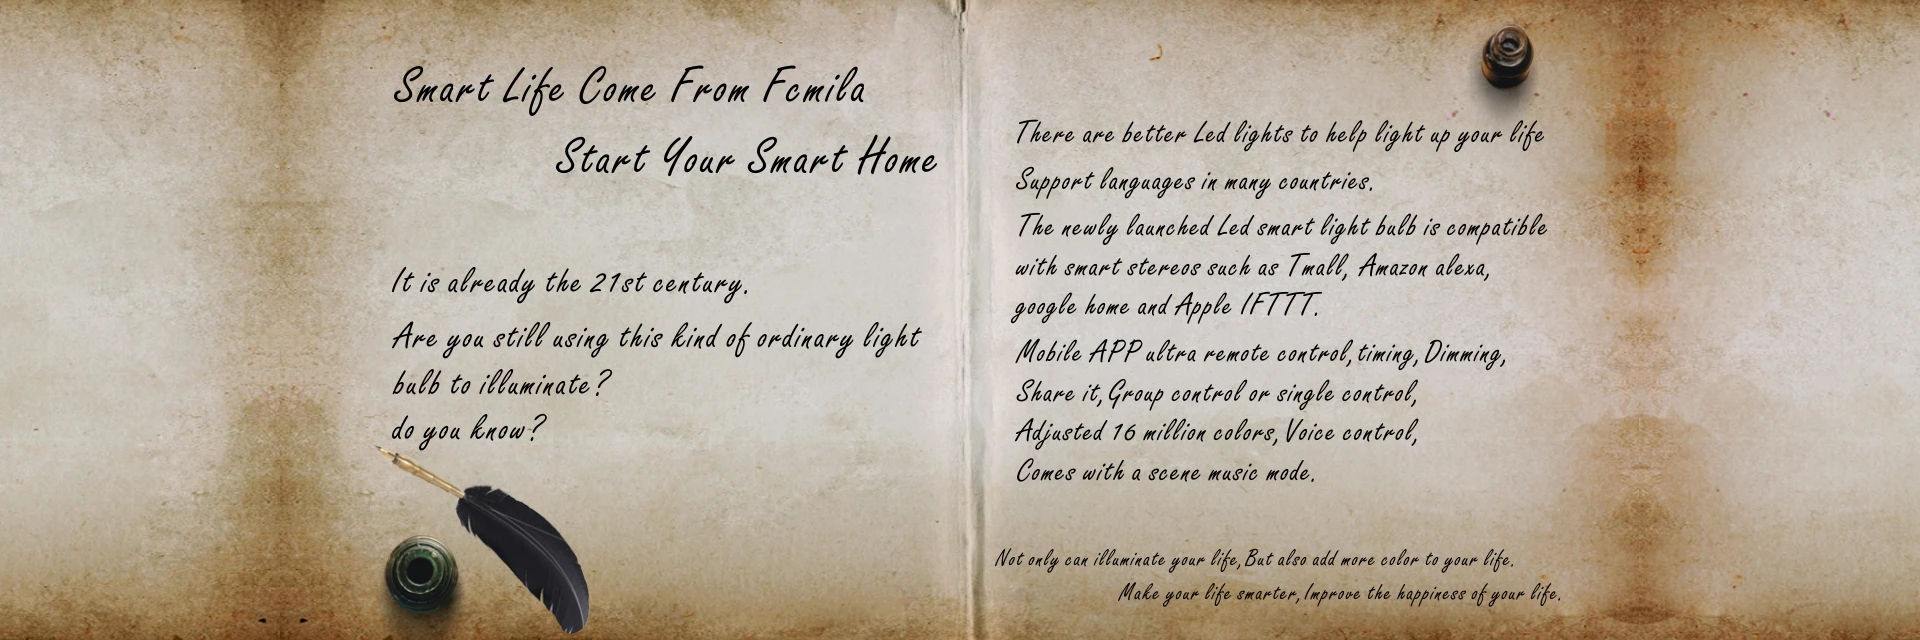 Smart Life Come From Fcmila
Start Your Smart Home
It is already the 21st century.
Are you still using this kind of ordinary light
bulb to illuminate?
do you know?
There are better Led lights to help light up your life
Support languages in many countries.
The newly launched Led smart light bulb is compatible
with smart stereos such as Tmall, Amazon alexa,
google home and Apple IFTTT.
Mobile APP ultra remote control,timing,Dimming,
Share it,Group control or single control,
Adjusted 16 million colors,Voice control,
Comes with a scene music mode.
Not only can illuminate your life,But also add more color to your life.
Make your life smarter,Improve the happiness of your life.